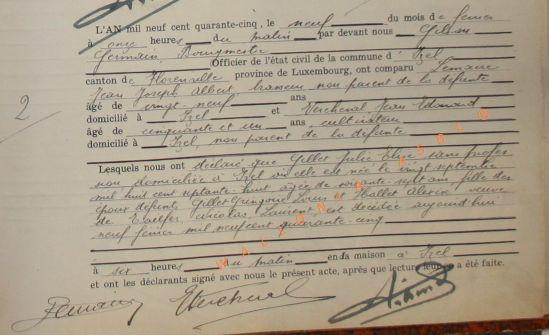 2
L'AN mil neuf cent quarante-cinq, le neuf du mois de fevrier
à onze heures du matin par devant nous
Germain, Bourgmestre
Officier de l'état civil de la commune d' Izel
canton de Florenville province de Luxembourg, ont comparu Lemaire
Jean Joseph Albert, non parent de la défunte
âgé de vingt-neuf ans
domicilié à Izel et Jean Edouard
âgé de cinquante et un ans cultivateur
domicilié à Izel, non parent de la défunte
Lesquels nous ont déclaré que Gillet Julie Elise sans profes
sion domiciliée à Izel où elle est née le vingt septembre
mil huit cent septante-huit âgée de soixante-six ans fille des
époux défunts Gillet Grégoire Louis et Hallet veuve
de Nicolas Laurent, est décédée aujourd'hui
neuf février mil neuf cent quarante-cinq
à six heures du matin en sa maison à Izel
et ont les déclarants signé avec nous le présent acte, après que lecture leur en a été faite.
Lemaire